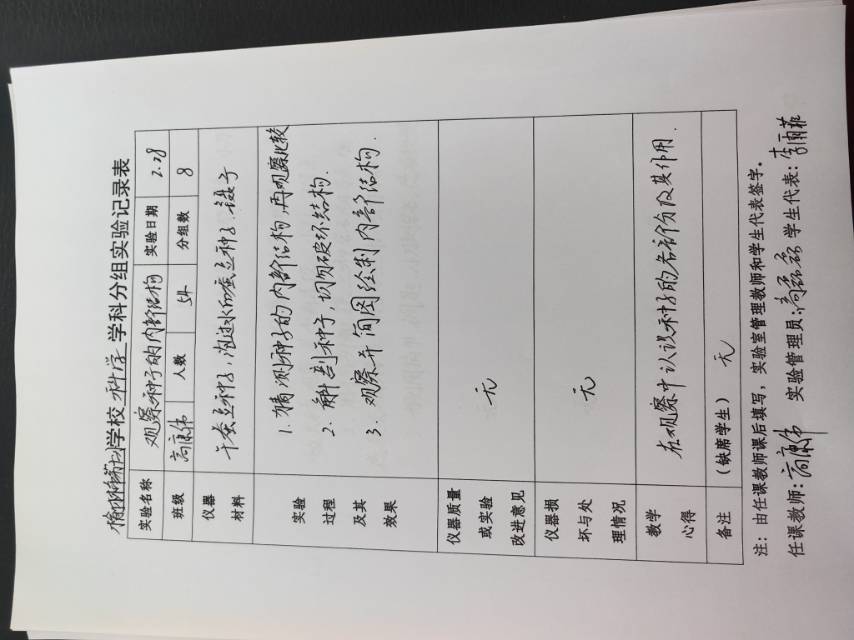 学校 科学 学科分组实验记录表
实验名称 观察种子的内部结构 实验日期 2.28
班级 人数 54 分组数 8
仪器材料 干蚕豆种子，泡过水的蚕豆种子，镊子
实验过程及其效果
1. 猜测种子的内部结构，再观察比较
2. 解剖种子，切勿破坏结构.
3. 观察并简图绘制内部结构.
仪器质量或实验改进意见 无
仪器损坏与处理情况 无
教学心得 在观察中认识种子的各部份及其作用.
备注 （缺席学生） 无
注：由任课教师课后填写，实验室管理教师和学生代表签字。
任课教师: 实验管理员: 学生代表: